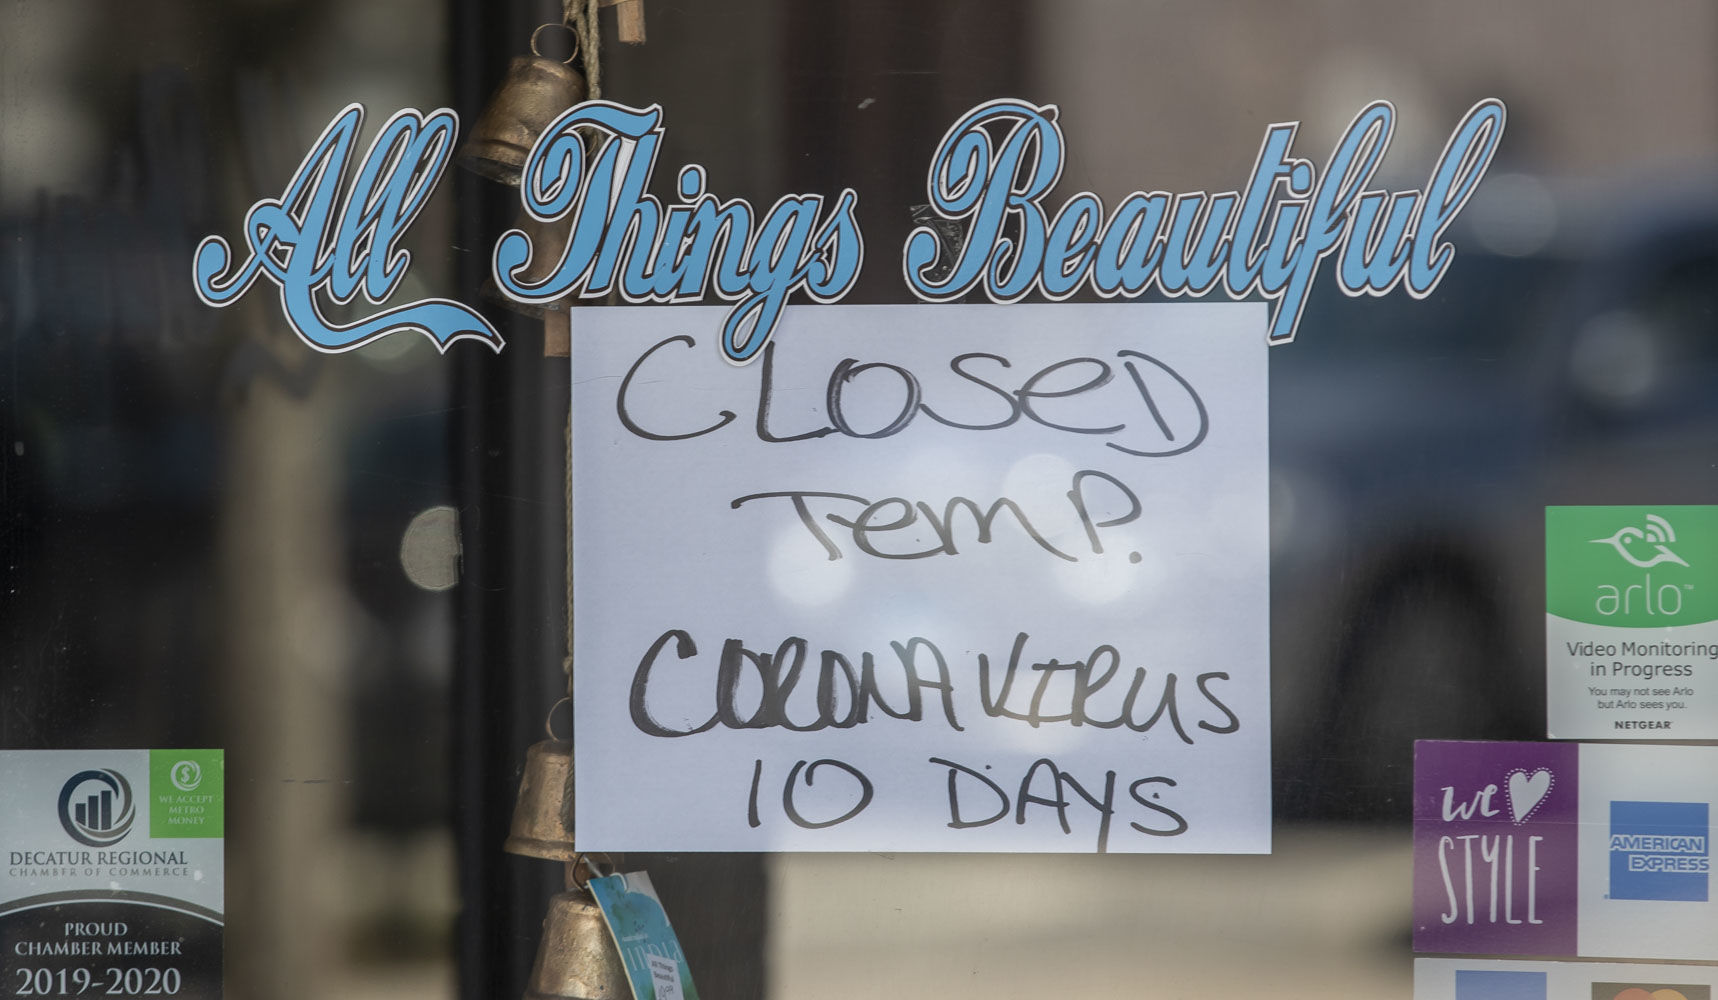 All Things Beautiful
CLOSED
TEMP.
CORONAVIRUS
10 DAYS
arlo™
Video Monitoring
in Progress
You may not see Arlo
but Arlo sees you.
NETGEAR
we
STYLE
AMERICAN
EXPRESS
WE ACCEPT
METRO
MONEY
DECATUR REGIONAL
CHAMBER OF COMMERCE
PROUD
CHAMBER MEMBER
2019-2020
INDIA
All Things
Beautiful